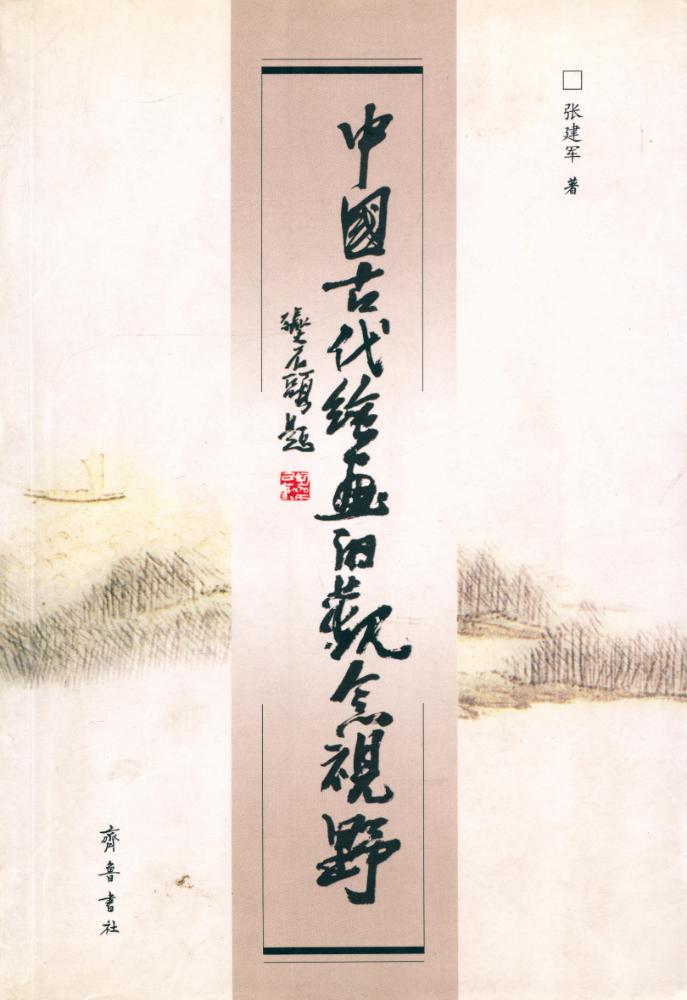 张建军 著
中國古代绘畫的觀念視野
張石頭題
齊魯書社